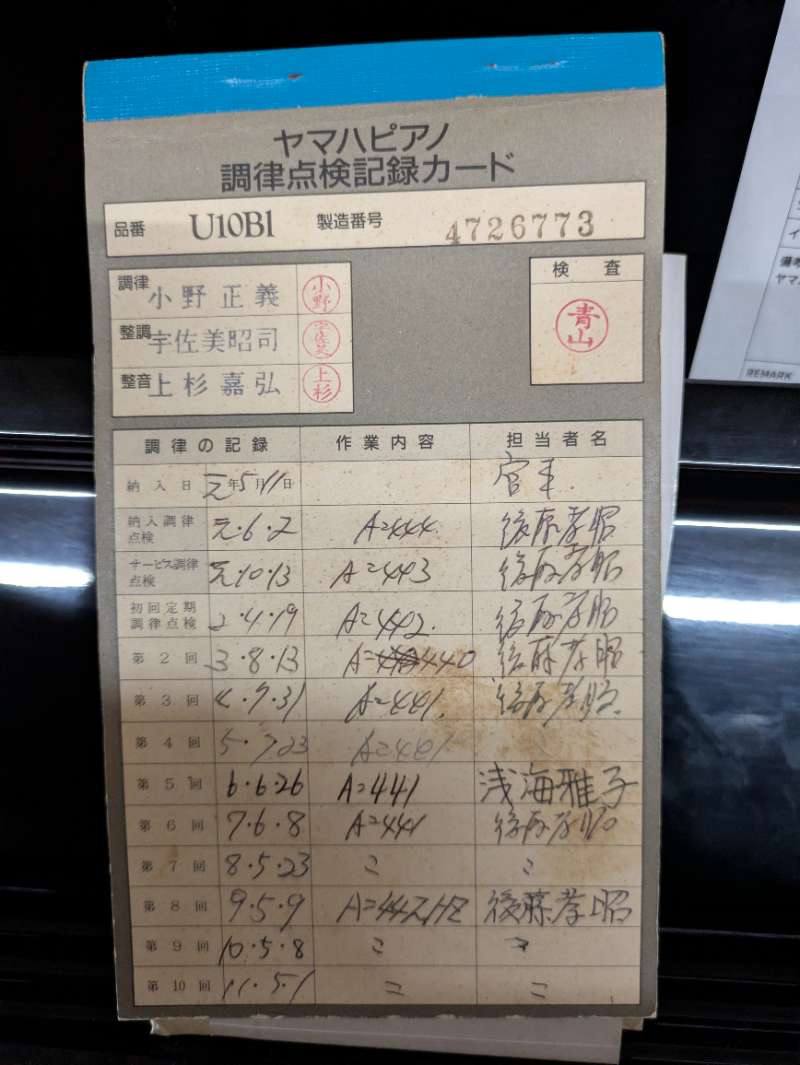 ヤマハピアノ
調律点検記録カード
品番 U10Bl 製造番号 4726773
調律 小野正義 小野
整調 宇佐美昭司 宇佐美
整音 上杉嘉弘 上杉
検査
青山
調律の記録 作業内容 担当者名
納入日 元年5月11日
納入調律点検 元・6・2 A=444
サービス調律点検 元・10・13 A=443
初回定期調律点検 2・4・19 A=442
第2回 3・8・13 A=440
第3回 4・7・31 A=441
第4回 5・7・23 A=441
第5回 6・6・26 A=441 浅海雅子
第6回 7・6・8 A=441
第7回 8・5・23 〃 〃
第8回 9・5・9 A=442HZ 後藤孝昭
第9回 10・5・8 〃 〃
第10回 11・5・1 〃 〃
備考
ヤマ
REMARK